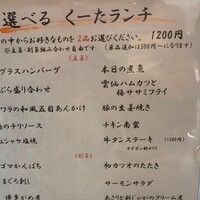 選べる くーたランチ
の中からお好きなものを2品お選びください。 1200円
※主菜・副菜組み合わせ自由です (単品追加は500円~になります)
【主菜】
グラスハンバーグ 本日の煮魚
ぷら盛り合わせ 雲仙ハムカツと
梅ササミフライ
ワラの和風五目あんかけ 豚の生姜焼き
チキン南蛮
シャケ塩焼 牛タンステーキ (+300円)
【副菜】
ゴマかんぱち 初カツオのたたき
まぐろ刺し サーモンサラダ
博多がめ煮